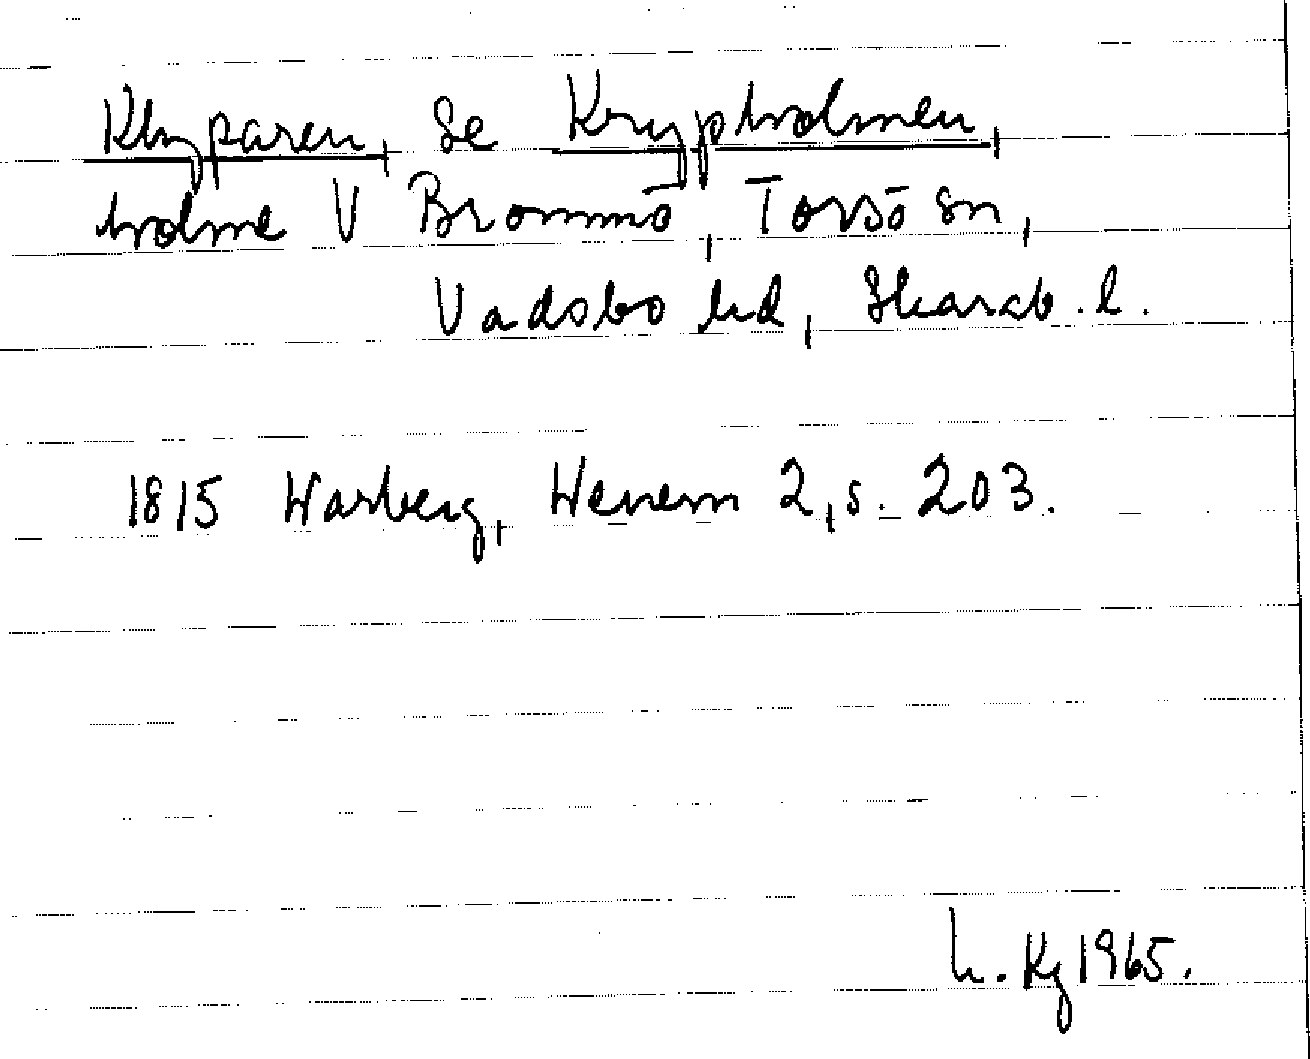 Klyparen, se Krypholmen,
holme V Brommö, Torsö sn,
Vadsbo hd, Skarab. l.
1815 Warberg, Wenern 2, s. 203.
h. Kg 1965.